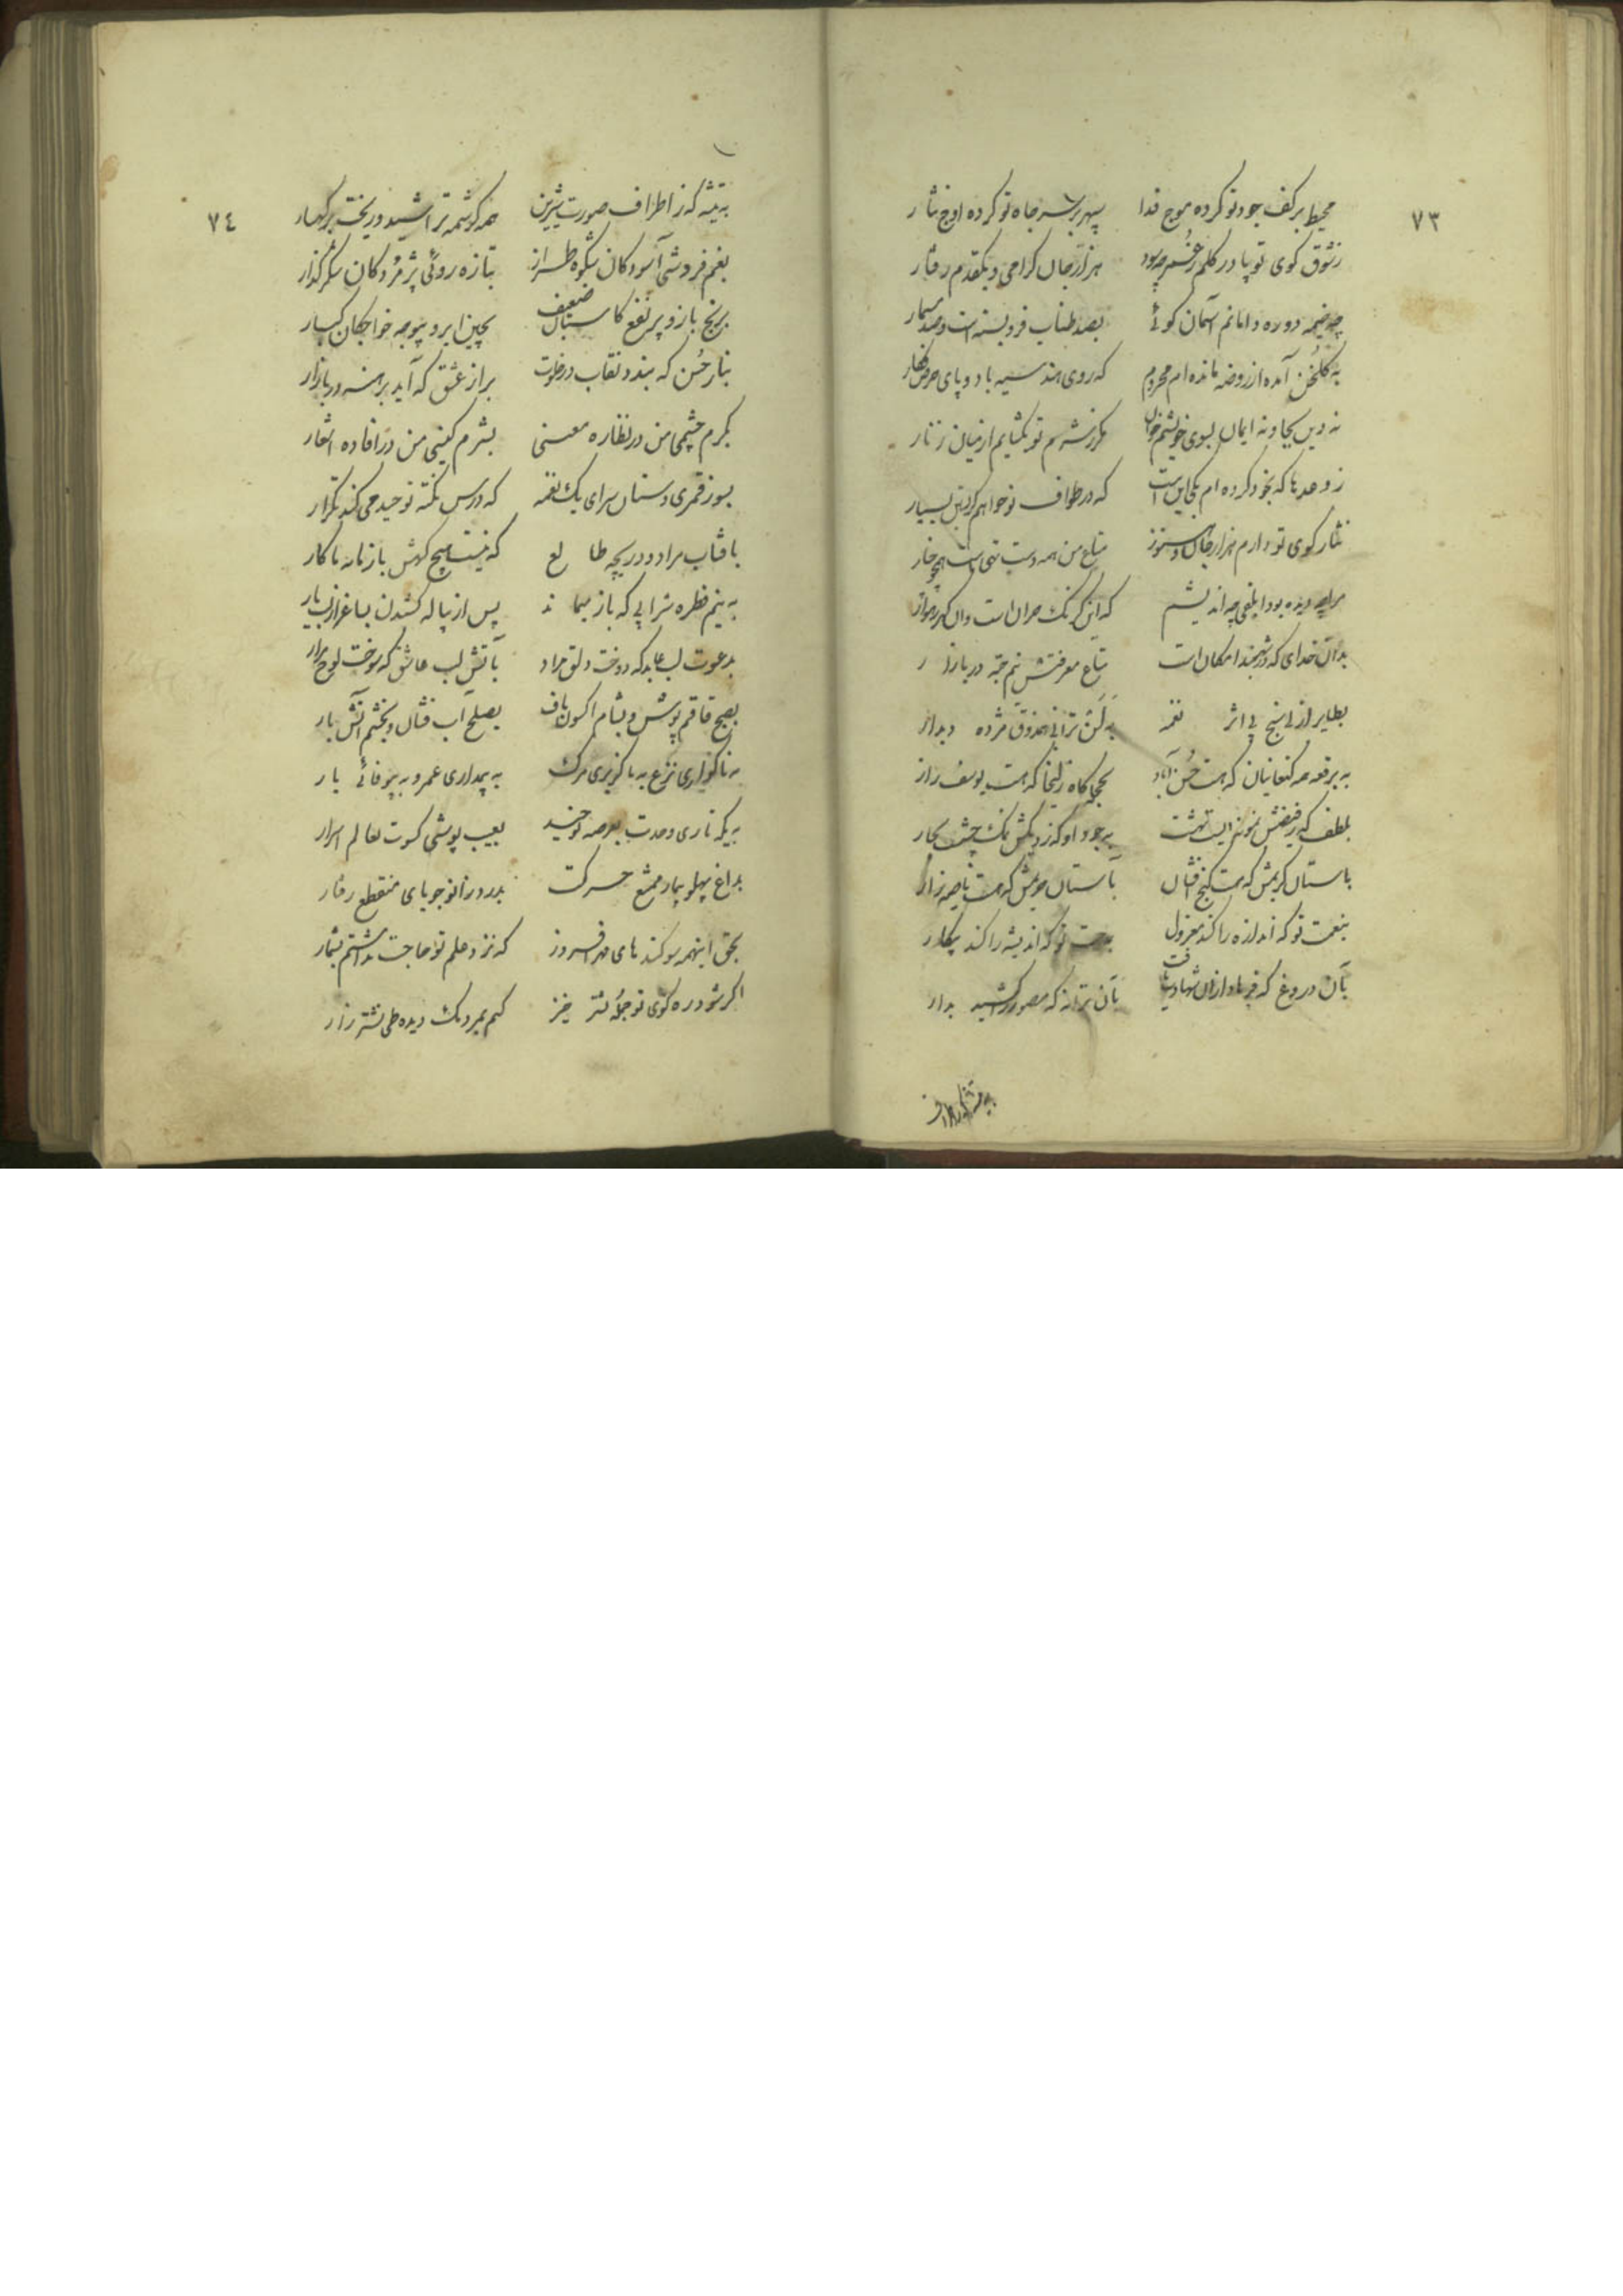 ٧٣
محیط بر کف جود تو کرده موج فدا سپهر بر سر جاه تو کرده اوج نثار
ز شوق کوی تو پا در کلم چه سود هزار جان کرامی و یکقدم رفتار
چو خیمه دوره دامانم آسمان کوئی بصد طناب فرو بسته است و صد مسمار
به کلخن آمده از روضه مانده ام محروم که روی هند سیه باد و پای
نه دین بجا و نه ایمان بسوی خویشتنم خوان مکر ز شرم تو بکشایم از میان زنار
ز وعدها که بخود کرده ام یکی این است که در طواف تو خواهم کریستن بسیار
نثار کوی تو دارم هزار جان و هنوز متاع من همه دست تهی است
چه دیده بود چه اندیشم که این
بدان خدای که در شهربند امکان است متاع معرفتش نیم حبه در بازار
بطایر ارنی سنج بی اثر نغمه به لن ترانی همذوق مژده دیدار
به برقع مه کنعانیان که هست حسن آباد بحجله کاه زلیخا که هست یوسف زار
بلطف کز فیضش نمونه ایست بهشت بجود او که ز دیکش نمک چشید بحار
باستان کریمش که هست کنج فشان بآستان حریمش که هست ناصیه زار
بنعمت تو که اندازه را کند معزول بمدحت تو که اندیشه را کند بیکار
بآن دروغ که فرهاد ازان شهادت یافت بآن ترانه که منصور را کشید بدار
به تیشه که ز اطراف
٧٤
به تیشه که ز اطراف صورت شیرین همه کرشمه تراشید و ریخت بر کهسار
بغم فروشی آسودکان شکوه طراز بتازه روئی پژمردکان شکر گذار
برنج بازو پر نفع کاسبان ضعیف بچین ابرو بیوجه خواجکان کبار
بناز حسن که بندد نقاب در خلوت براز عشق که آید برهنه در بازار
بکرم چشمی من در نظاره معنی بشرم کینی من در افاده اشعار
بسوز قمری دستان سرای یک نغمه که درس نکته توحید می کند تکرار
بافتاب مراد و دریچه طالع که نیست هیچ کهش باز نامه با کار
به نیم قطره شرابی که باز میماند پس از پیاله کشیدن بساغر از لب یار
بدعوت لب عابد که دوخت دلق مراد بآتش لب عاشق که سوخت لوح مزار
بصبح قاقم پوش و بشام اکسون باف بصلح آب فشان و بخشم آتش بار
به ناکواری نزع به ناکزیری مرک به پیمداری عمر و به بیوفائی یار
به یکه تازی وحدت بعرصه توحید بعیب پوشی کسوت بعالم اسرار
بداغ پهلو بیمار ممتنع حرکت بدرد زانو جویای منقطع رفتار
بحق اینهمه سوکند های مهر افروز که نزد حلم تو حاجت نداشتم بشمار
اکر شود ره کوی تو جمله نشتر خیز کنم بمردمک دیده طی نشتر زار